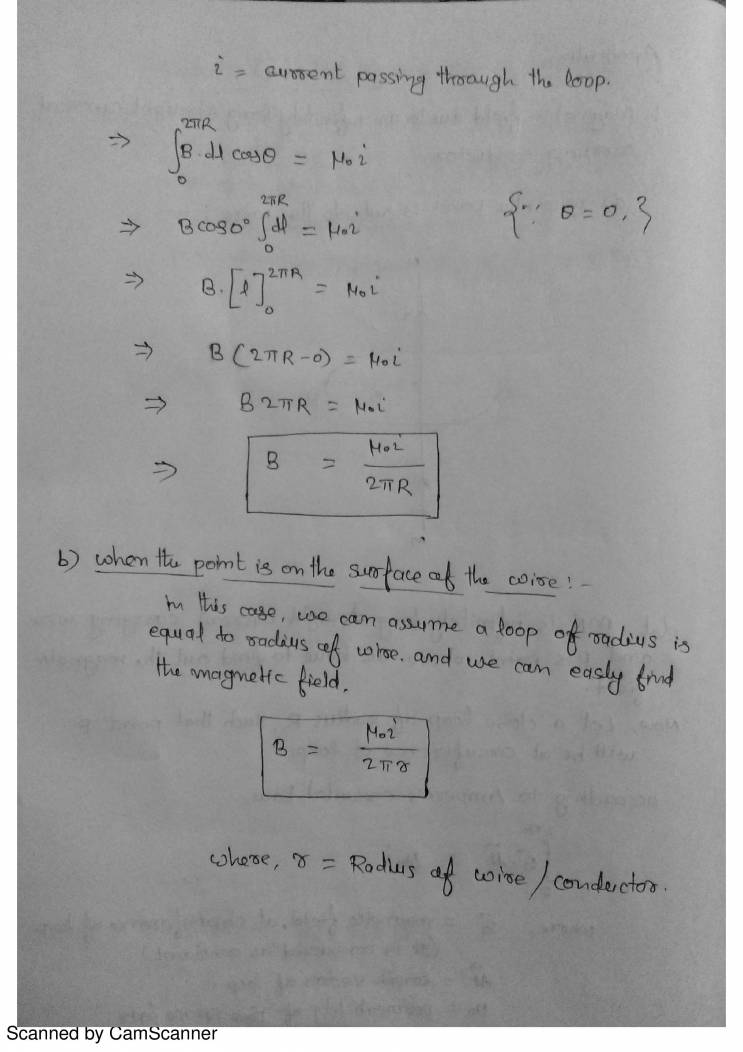 i = current passing through the loop.
⇒ ∫₀^{2πR} B·dl cosθ = μ₀i
⇒ B cos0° ∫₀^{2πR} dl = μ₀i {∵ θ = 0,}
⇒ B·[l]₀^{2πR} = μ₀i
⇒ B(2πR-0) = μ₀i
⇒ B 2πR = μ₀i
⇒ B = μ₀i / 2πR
b) when the point is on the surface of the wire:-
In this case, we can assume a loop of radius is
equal to radius of wire. and we can easly find
the magnetic field.
B = μ₀i / 2πr
where, r = Radius of wire / conductor.
Scanned by CamScanner